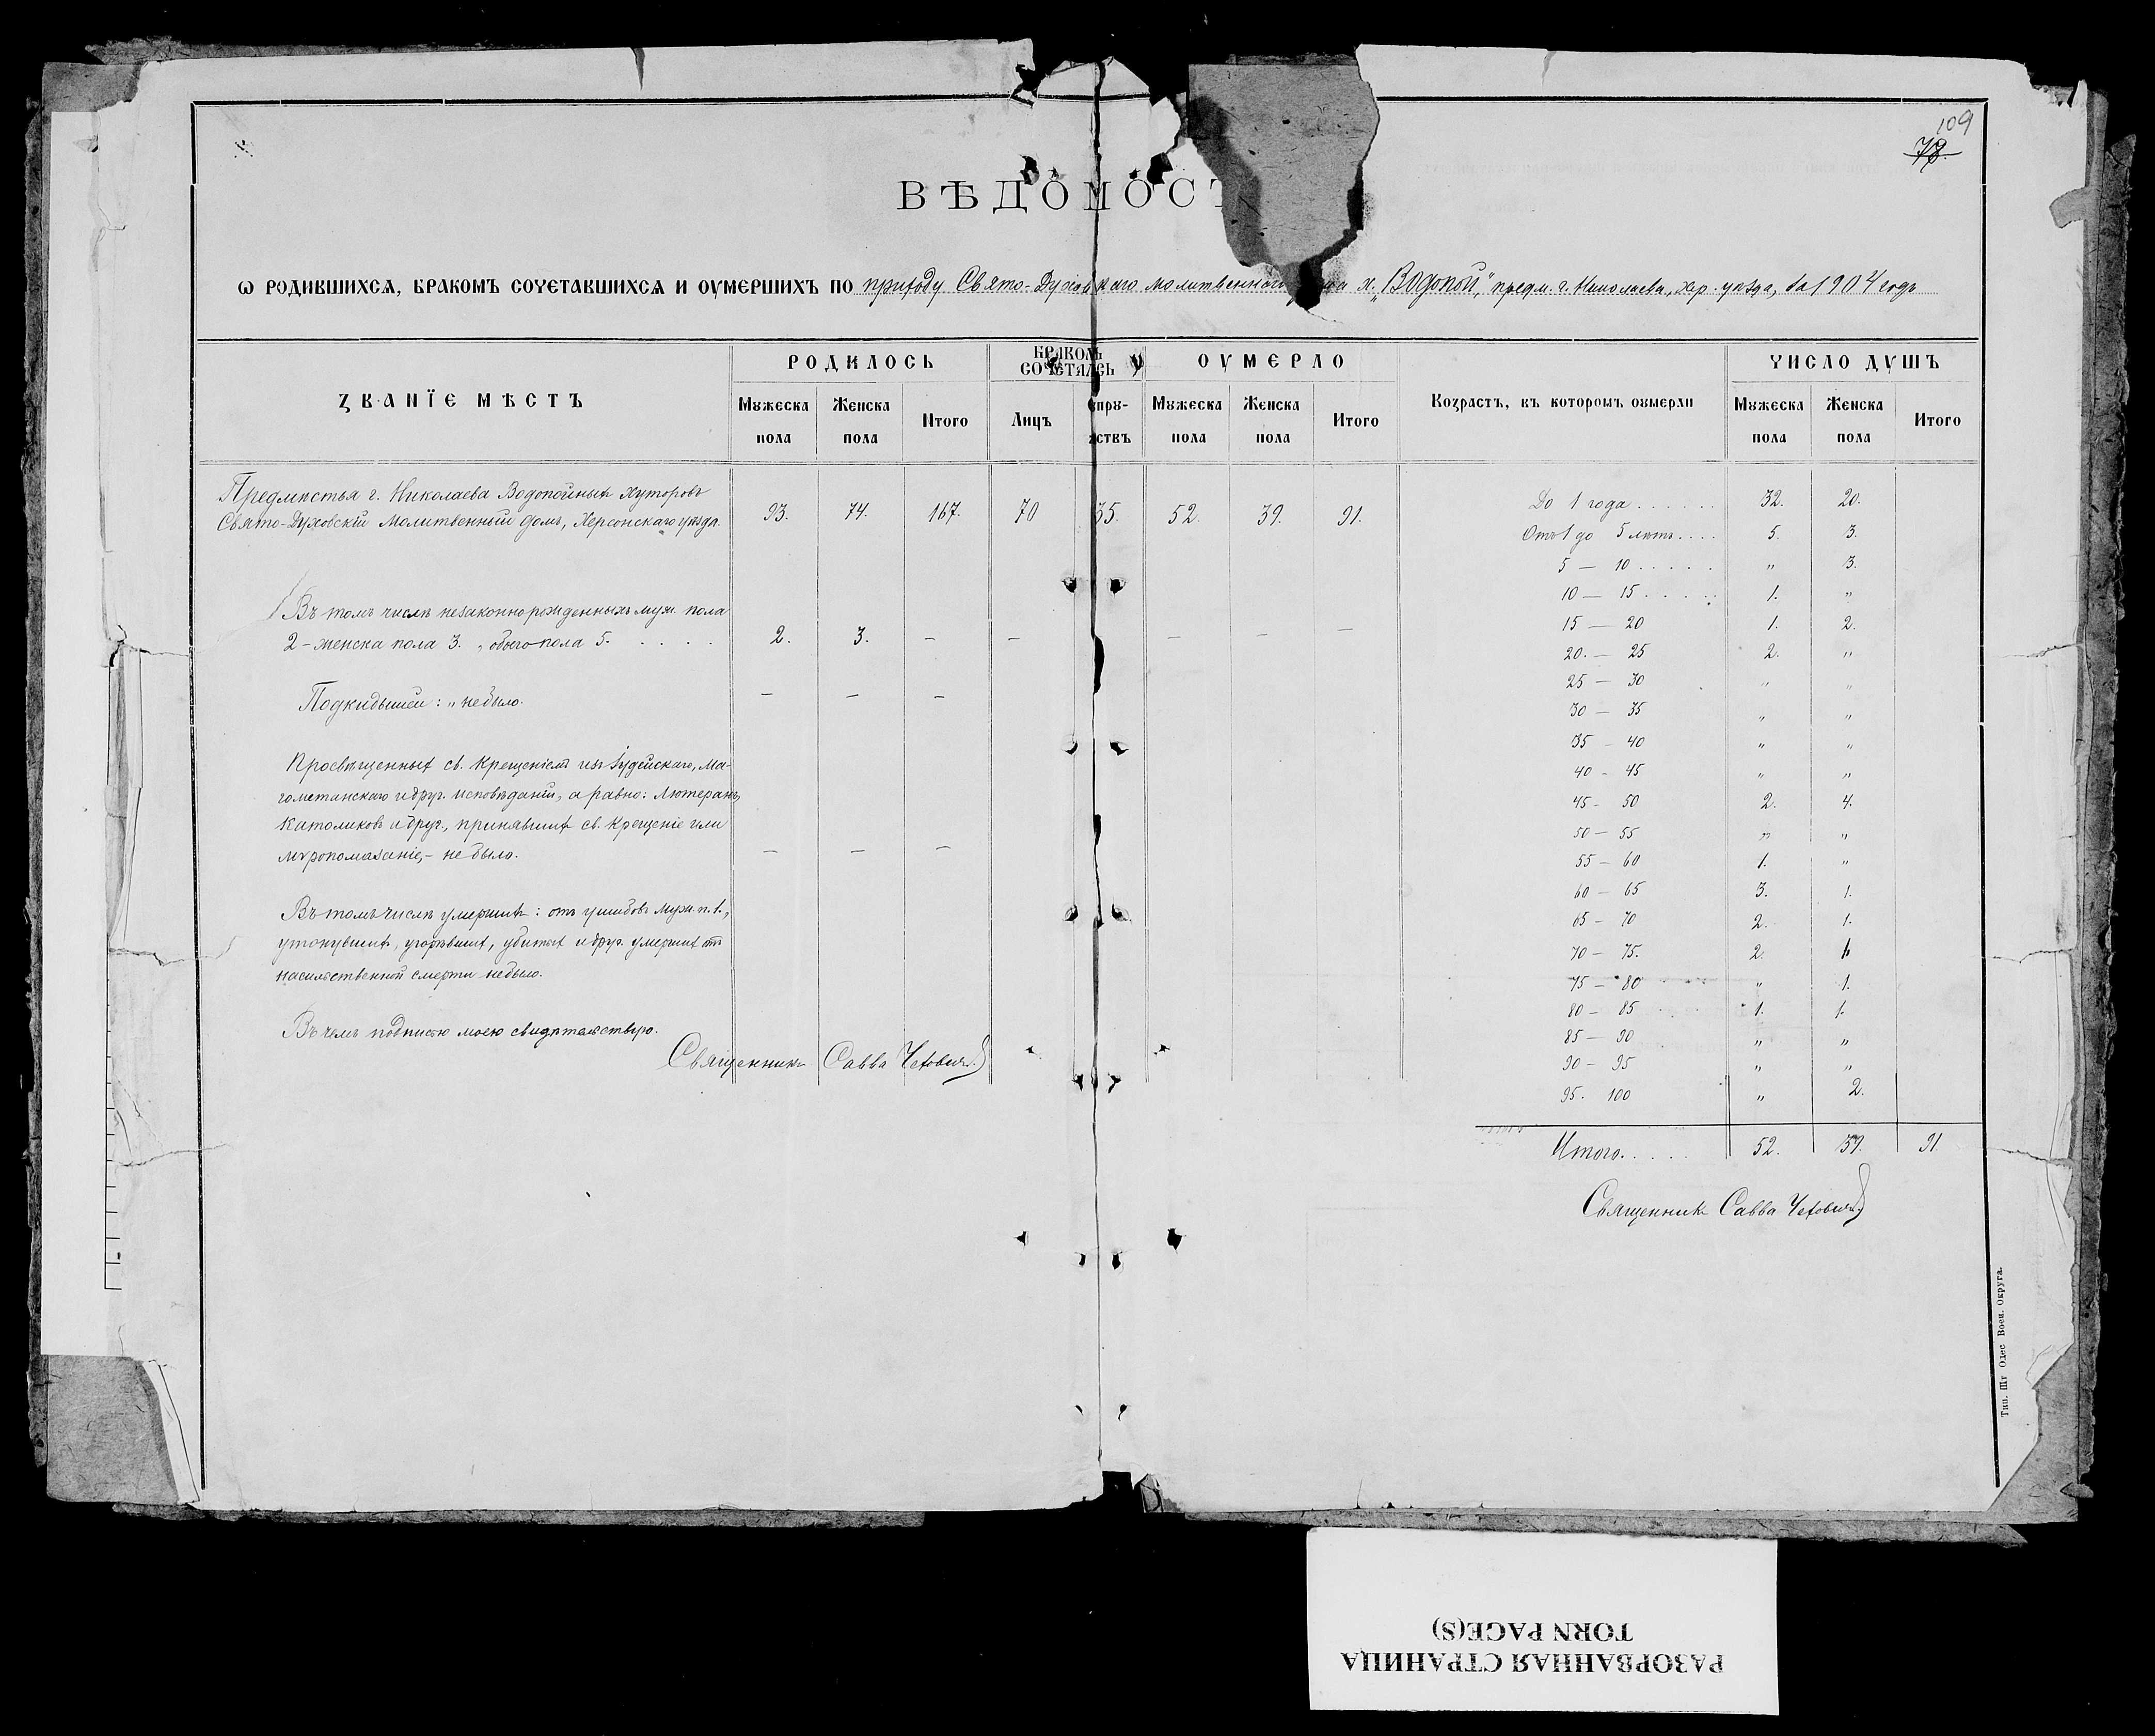 109
78.
ВѢДОМОСТ
Ѡ РОДИВШИХСѦ, БРАКОМЪ СОЧЕТАВШИХСѦ И ОУМЕРШИХЪ ПО приходу Свято-Духовскаго молитвеннаго х. „Водопой", предм. г. Николаева, хер. уѣзда, за 1904 годъ
ЗВАНЇЕ МѢСТЪ
РОДИЛОСЬ
БРАКОМЪ СОЧЕТАЛСЬ
ОУМЕРЛО
Возрастъ, въ которомъ оумерли
ЧИСЛО ДУШЪ
Мужеска пола Женска пола Итого Лицъ Супру-жствъ Мужеска пола Женска пола Итого Мужеска пола Женска пола Итого
Предмѣстья г. Николаева Водопойныхъ хуторовъ
Свято-Духовскій Молитвенный домъ, Херсонскаго уѣзда. 93. 74. 167. 70 35. 52. 39. 91.
Въ томъ числѣ незаконнорожденныхъ муж. пола
2 – женска пола 3. „ обоего пола 5. . . . . 2. 3. — — — — —
Подкидышей: „ не было. — — —
Просвѣщенныхъ св. Крещеніемъ изъ Іудейскаго, Ма-
гометанскаго и друг. исповѣданій, а равно: Лютеранъ,
Католиковъ и друг., принявшихъ св. Крещеніе или
мѵропомазаніе, – не было. — — —
Въ томъ числѣ умершихъ: отъ ушибовъ муж. п. 1.,
утонувшихъ, угорѣвшихъ, убитыхъ и друг. умершихъ отъ
насильственной смерти не было.
Въ чемъ подписью моею свидѣтельствую.
Священникъ Савва Чехович.
До 1 года . . . . . . 32. 20.
Отъ 1 до 5 лѣтъ . . . . 5. 3.
5 — 10 . . . . . „ 3.
10 — 15 . . . . . 1. „
15 — 20 1. 2.
20. — 25 2. „
25 — 30 „ „
30 — 35 „ „
35 – 40 „ „
40 - 45 „ „
45 - 50 2. 4.
50 — 55 „ „
55 — 60 1. „
60 — 65 3. 1.
65 — 70 2. 1.
70 — 75. 2. 1
75 — 80 „ 1.
80 — 85 1. 1.
85 — 90 „ „
90 — 95 „ „
95. 100 „ 2.
Итого. . . . . 52. 39. 91.
Священникъ Савва Чехович.
Тип. Шт Одес Воен. Округа.
РАЗОРВАННАЯ СТРАНИЦА
TORN PAGE(S)